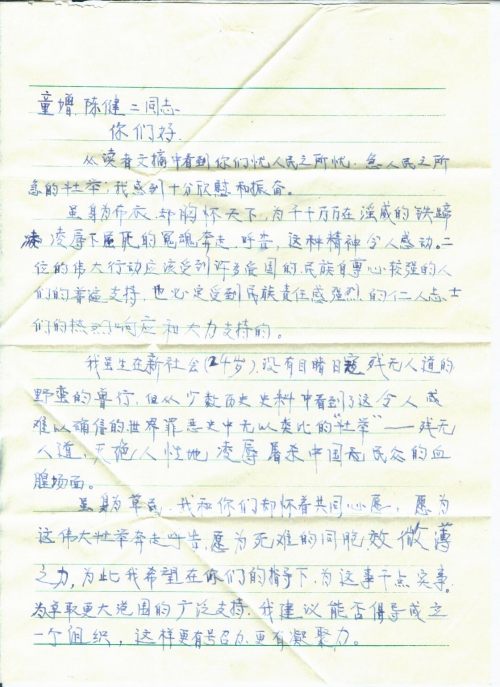 童增、陈健二同志:
你们好.
从读者文摘中看到你们忧人民之所忧、急人民之所
急的壮举;我感到十分欣慰和振奋。
虽身为布衣,却胸怀天下,为千千万万在淫威的铁蹄
凌辱下屈死的冤魂奔走、呼告,这种精神令人感动。二
位的伟大行动应该受到许多爱国的、民族自尊心较强的人
们的普遍支持,也必定受到民族责任感强烈的仁人志士
们的热烈响应和大力支持的。
我虽生在新社会(24岁),没有目睹日寇残无人道的
野蛮的兽行,但从少数历史史料中看到了这令人感
难以确信的世界罪恶史中无以类比的"壮举"——残无
人道,灭绝人性地凌辱屠杀中国民众的血
腥场面。
虽身为草民,我和你们却怀着共同心愿,愿为
这伟大壮举奔走呼告,愿为死难的同胞效微薄
之力,为此我希望在你们的指导下,为这事干点实事。
为争取更大范围的广泛支持,我建议能否倡导成立
一个组织,这样更有号召力,更有凝聚力。